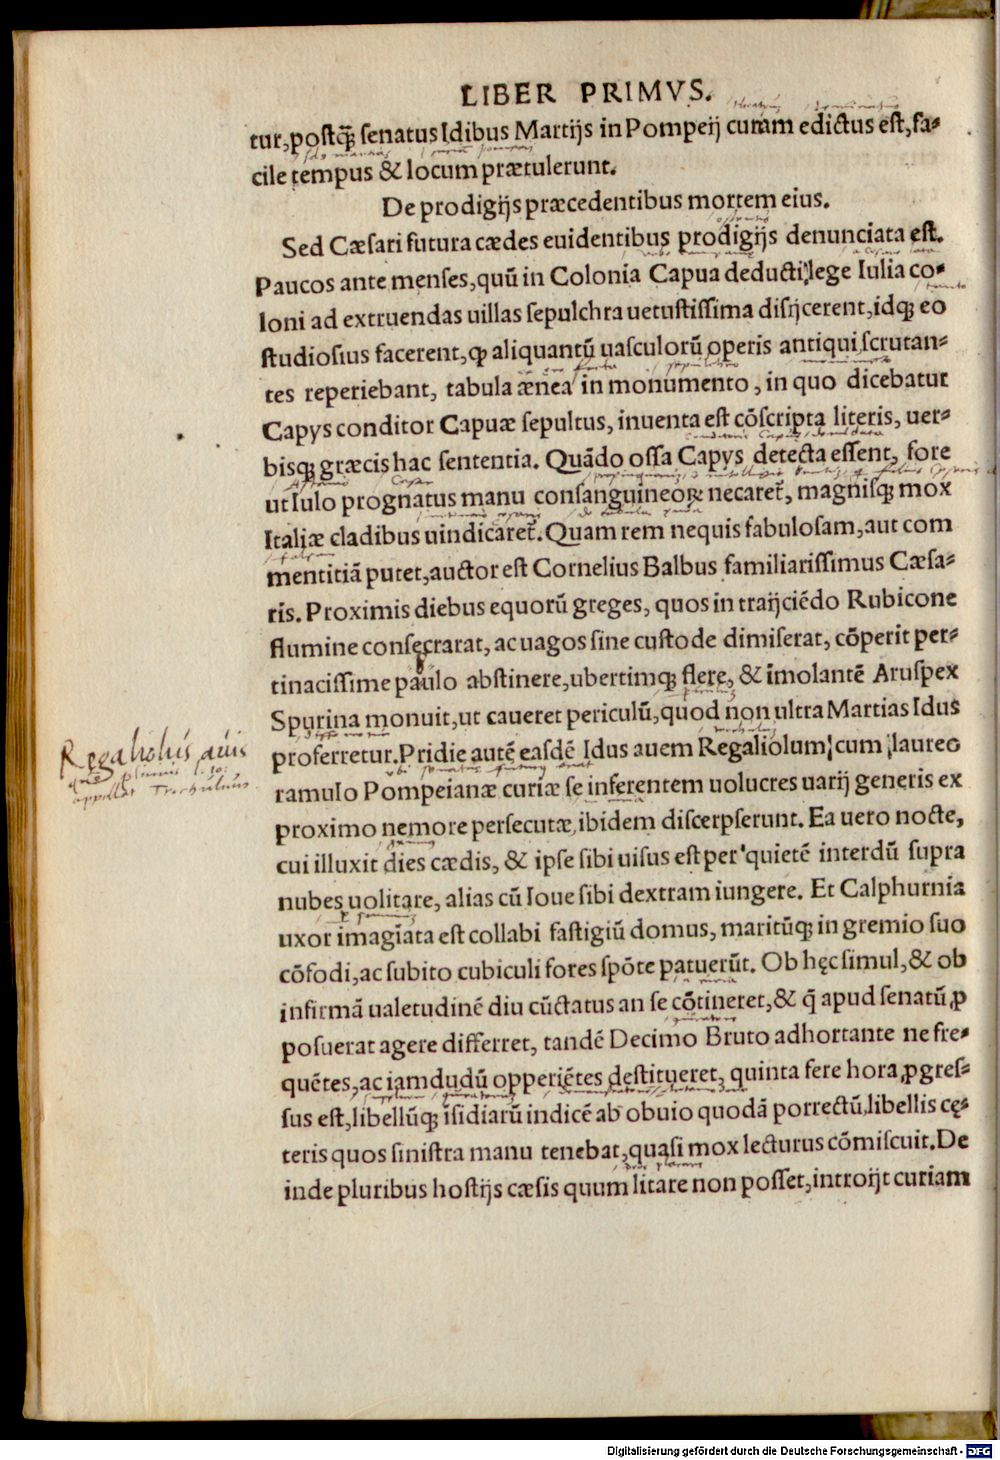 LIBER PRIMVS.
tur, postq̃ senatus Idibus Martijs in Pompeij curiam edictus est, fa-
cile tempus & locum prætulerunt.
De prodigijs præcedentibus mortem eius.
Sed Cæsari futura cædes euidentibus prodigijs denunciata est.
Paucos ante menses, quũ in Colonia Capua deducti lege Iulia co-
loni ad extruendas uillas sepulchra uetustissima disijcerent, idq; eo
studiosius facerent, ꝙ aliquantũ uasculorũ operis antiqui scrutan-
tes reperiebant, tabula ænea in monumento, in quo dicebatur
Capys conditor Capuæ sepultus, inuenta est cõscripta literis, uer-
bisq; græcis hac sententia. Quãdo ossa Capys detecta essent, fore
ut Iulo prognatus manu consanguineoꝝ necaret̃, magnisq; mox
Italiæ cladibus uindicaret̃. Quam rem nequis fabulosam, aut com
mentitiã putet, auctor est Cornelius Balbus familiarissimus Cæsa-
ris. Proximis diebus equorũ greges, quos in traijciẽdo Rubicone
flumine consecrarat, ac uagos sine custode dimiserat, cõperit per-
tinacissime paulo abstinere, ubertimq; flere, & ĩmolantẽ Aruspex
Spurina monuit, ut caueret periculũ, quod non ultra Martias Idus
proferretur. Pridie autẽ easdẽ Idus auem Regaliolum cum laureo
Regaliolus auis
ramulo Pompeianæ curiæ se inferentem uolucres uarij generis ex
proximo nemore persecutæ, ibidem discerpserunt. Ea uero nocte,
cui illuxit dies cædis, & ipse sibi uisus est per quietẽ interdũ supra
nubes uolitare, alias cũ Ioue sibi dextram iungere. Et Calphurnia
uxor imagĩata est collabi fastigiũ domus, maritũq; in gremio suo
cõfodi, ac subito cubiculi fores spõte patuerũt. Ob hęc simul, & ob
infirmã ualetudinẽ diu cũctatus an se cõtineret, & q̃ apud senatũ ꝓ
posuerat agere differret, tandẽ Decimo Bruto adhortante ne fre-
quẽtes, ac iamdudũ opperiẽtes destitueret, quinta fere hora ꝓgres-
sus est, libellũq; ĩsidiarũ indicẽ ab obuio quodã porrectũ, libellis cę-
teris quos sinistra manu tenebat, quasi mox lecturus cõmiscuit. De
inde pluribus hostijs cæsis quum litare non posset, introijt curiam
Digitalisierung gefördert durch die Deutsche Forschungsgemeinschaft - DFG